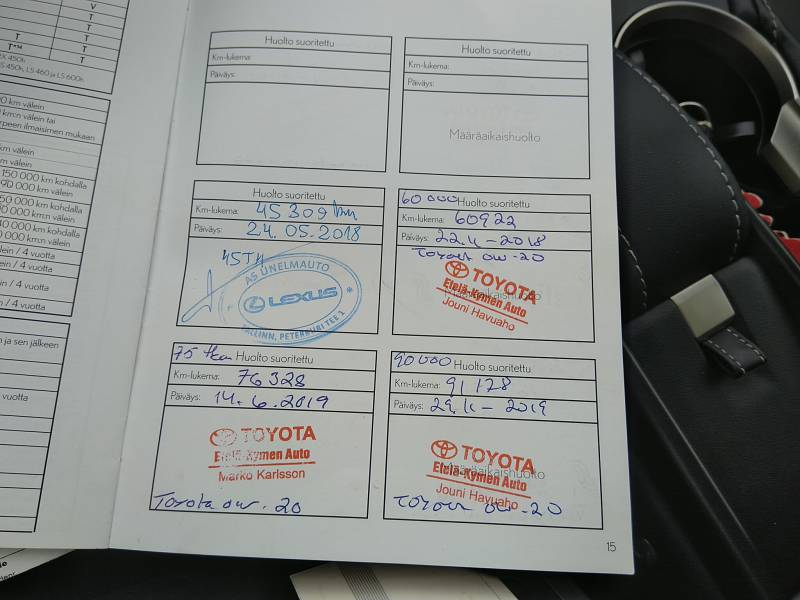 V
T
T
T
T
T*³⁴
T
X 450h
S 450h, LS 460 ja LS 600h
0 km välein
km:n välein tai
rpeen ilmaisimen mukaan
km välein
m välein
150 000 km kohdalla
90 000 km välein
50 000 km kohdalla
000 km välein
40 000 km kohdalla
0 000 km:n välein
lein / 4 vuotta
ein / 4 vuotta
in / 4 vuotta
n ja sen jälkeen
vuotta
Huolto suoritettu
Km-lukema:
Päiväys:
Huolto suoritettu
Km-lukema:
Päiväys:
Määräaikaishuolto
Huolto suoritettu
Km-lukema: 45309 km
Päiväys: 24.05.2018
45TH
AS UNELMAUTO
LEXUS
TALLINN, PETERBURI TEE
60000 Huolto suoritettu
Km-lukema: 60922
Päiväys: 22.11-2018
Toyota ow-20
TOYOTA
Etelä-Kymen Auto
Määräaikaishuolto
Jouni Havuaho
75 tkm Huolto suoritettu
Km-lukema: 76328
Päiväys: 14.6.2019
TOYOTA
Etelä-Kymen Auto
Marko Karlsson
Toyota ow-20
90000 Huolto suoritettu
Km-lukema: 91128
Päiväys: 29.11-2019
TOYOTA
Etelä-Kymen Auto
Määräaikaishuolto
Jouni Havuaho
Toyota ow-20
15